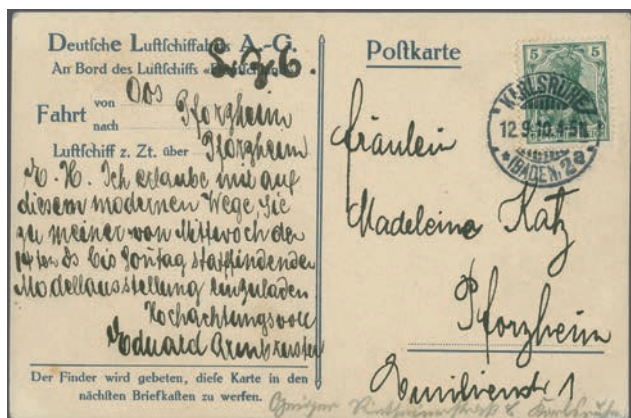 Deutsche Luftschiffahrts A.-G.
An Bord des Luftschiffs
L.Z.6.
Fahrt von Oos
nach Pforzheim
Luftschiff z. Zt. über Pforzheim
Ich erlaube mir auf
diesem modernen Wege, Sie
zu meiner von Mittwoch den
14ten ds bis Sonntag stattfindenden
Modellausstellung einzuladen
Hochachtungsvoll
Eduard Armbruster
Der Finder wird gebeten, diese Karte in den
nächsten Briefkasten zu werfen.
Postkarte
5 5
KARLSRUHE
12.9.10.4-5N.
(BADEN) 2a
Fräulein
Madeleine Katz
Pforzheim
Emilienstr 1